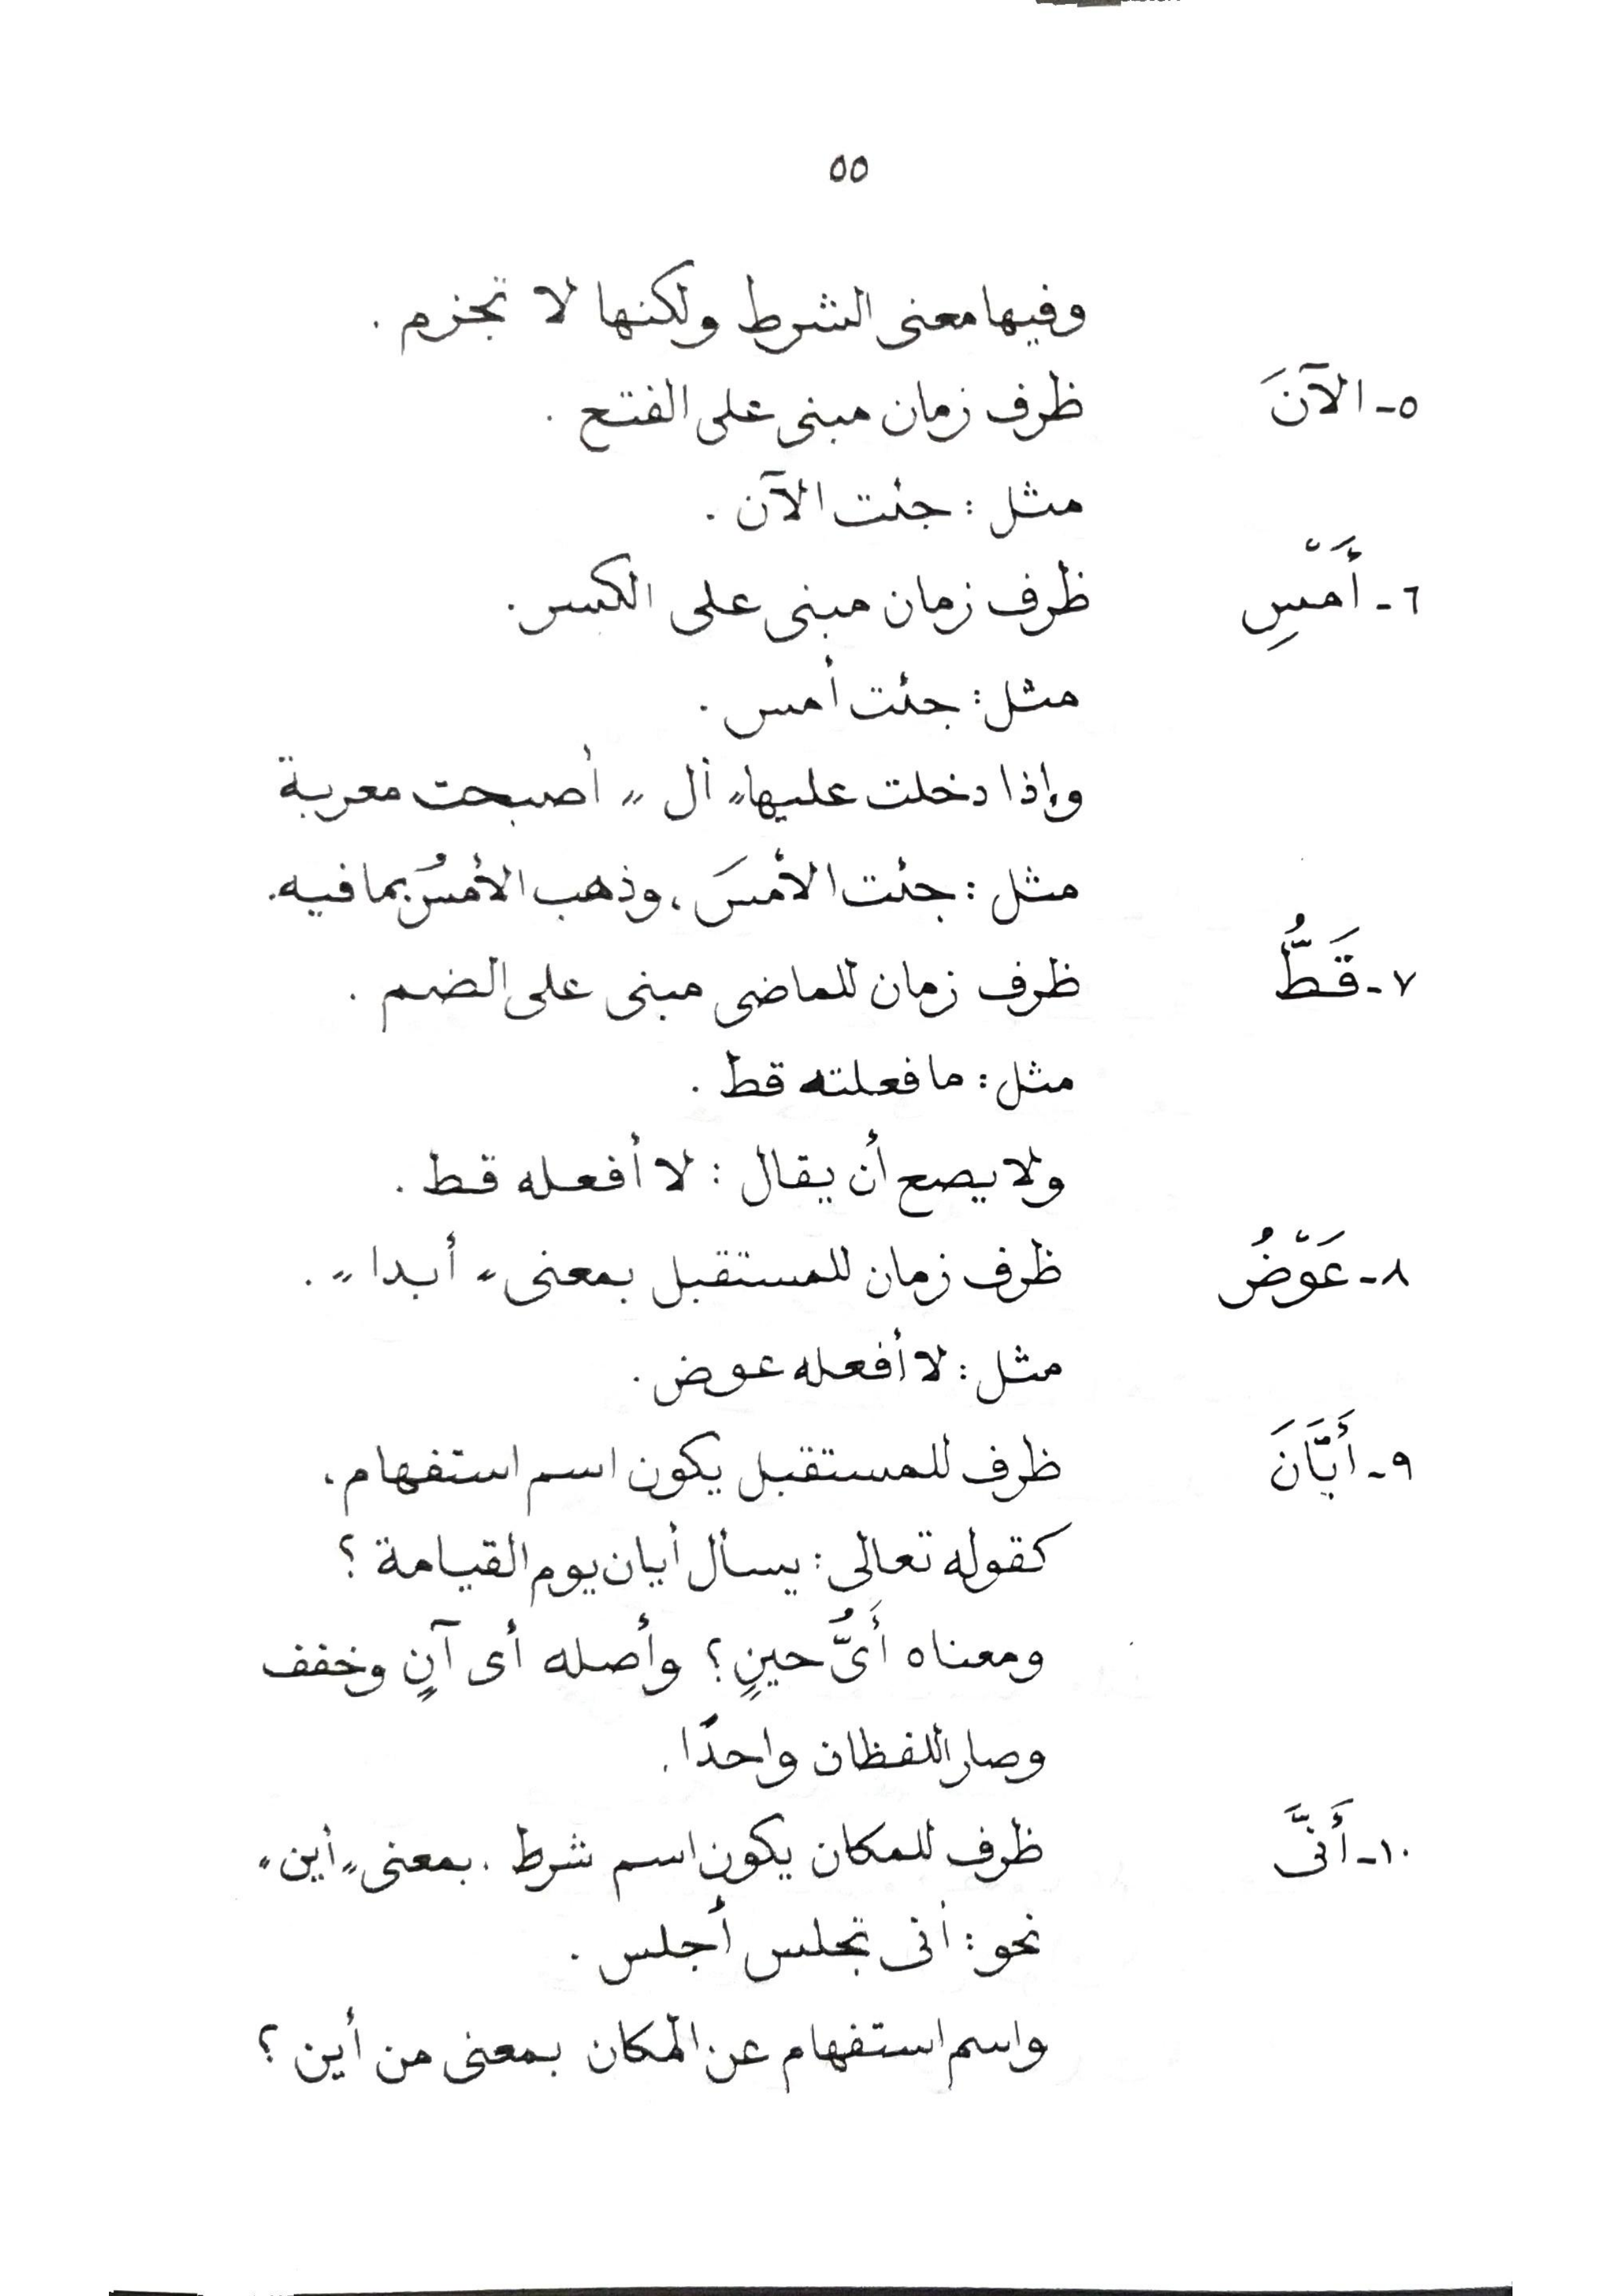 ٥٥
وفيها معنى الشرط ولكنها لا تجزم .
٥- الآنَ ظرف زمان مبنى على الفتح .
مثل : جئت الآن .
٦- أَمْسِ ظرف زمان مبنى على الكسر .
مثل : جئت أمس .
وإذا دخلت عليها " أل " أصبحت معربة
مثل : جئت الأمسَ ، وذهب الأمسُ بما فيه .
٧- قَطُّ ظرف زمان للماضى مبنى على الضم .
مثل : ما فعلته قط .
ولا يصح أن يقال : لا أفعله قط .
٨- عَوْضُ ظرف زمان للمستقبل بمعنى " أبدا " .
مثل : لا أفعله عوض .
٩- أَيَّانَ ظرف للمستقبل يكون اسم استفهام .
كقوله تعالى : يسأل أيان يوم القيامة ؟
ومعناه أَىُّ حينٍ ؟ وأصله أى آنٍ وخفف
وصار اللفظان واحدًا .
١٠- أَنَّى ظرف للمكان يكون اسم شرط . بمعنى " أين "
نحو : أنى تجلس أجلس .
واسم استفهام عن المكان بمعنى من أين ؟